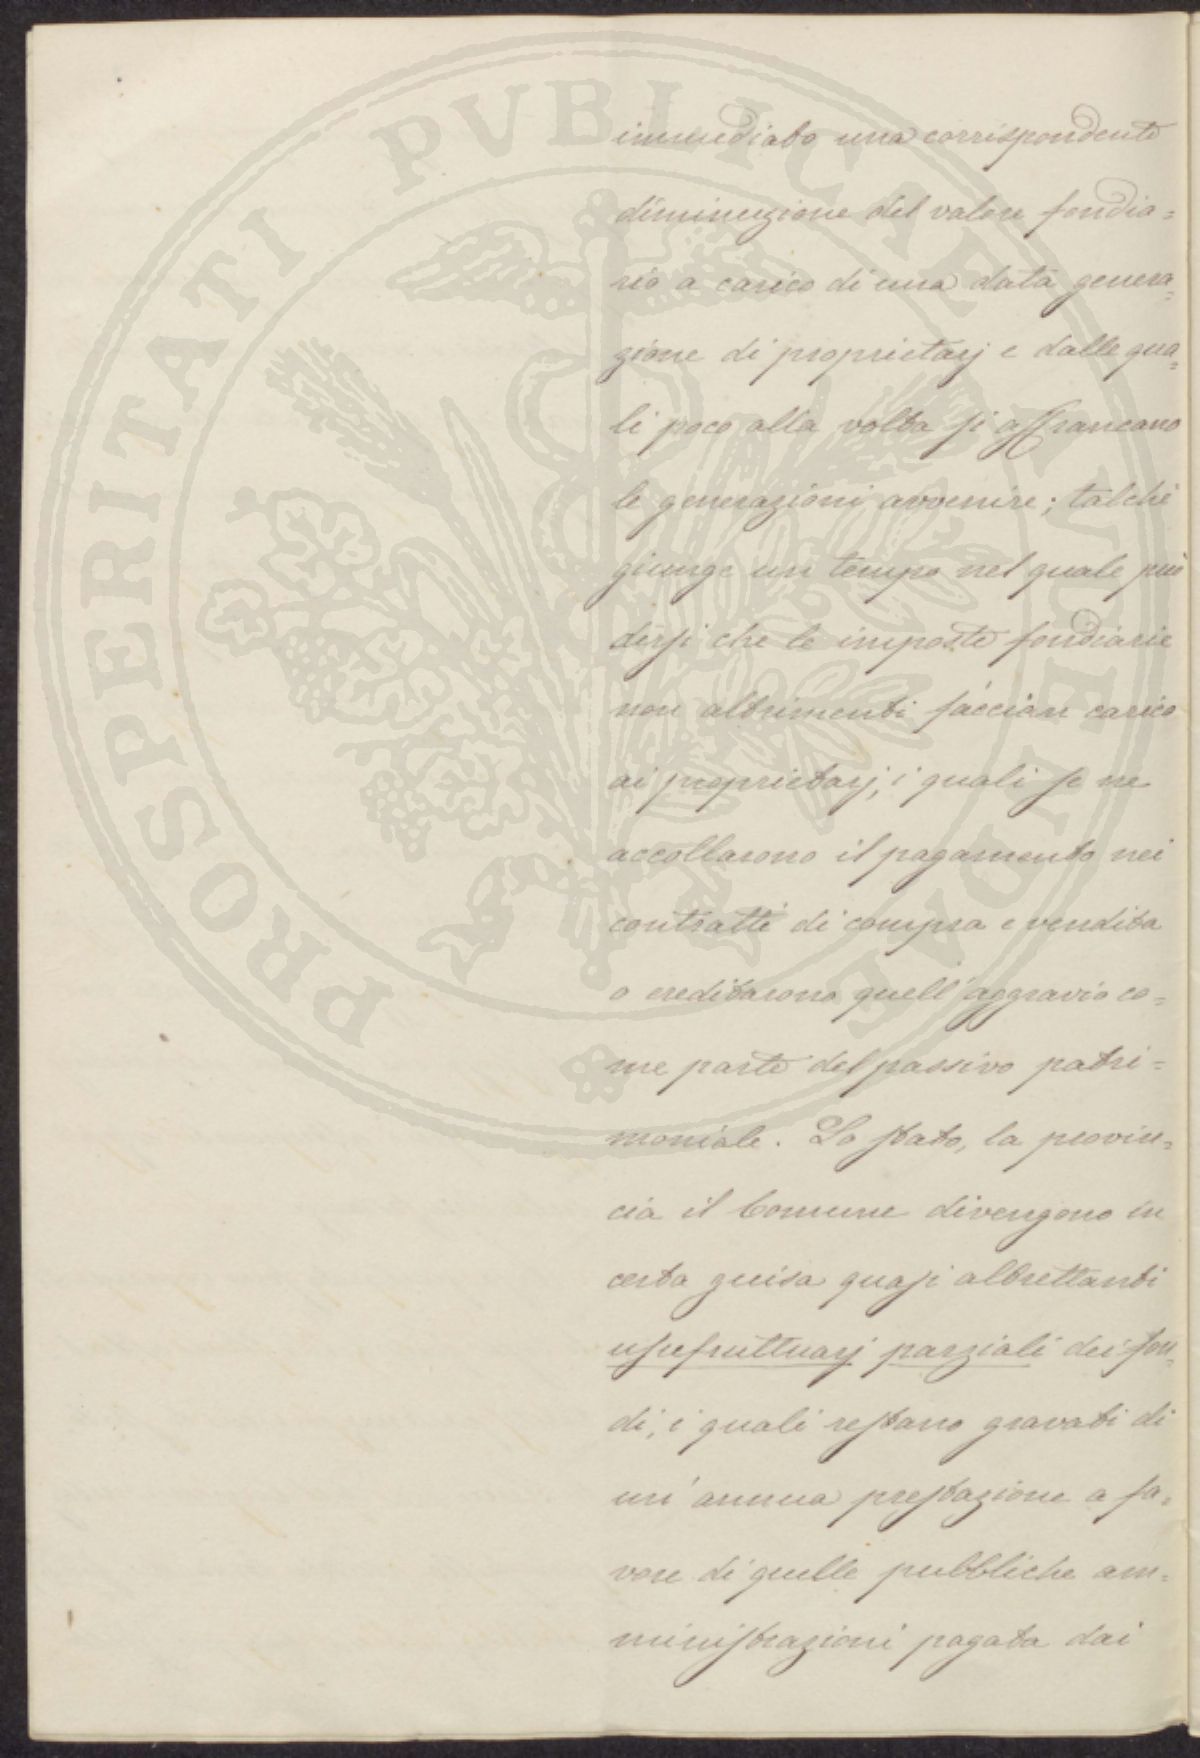 PROSPERITATI PVBLICAE AVGENDAE
immediato una corrispondente
diminuzione del valore fondia=
rio a carico di una data genera=
zione di proprietarj e dalle qua=
li poco alla volta si affrancano
le generazioni avvenire; talchè
giunge un tempo nel quale può
dirsi che le imposte fondiarie
non altrimenti faccian carico
ai proprietarj, i quali se ne
accollarono il pagamento nei
contratti di compra e vendita
o ereditarono quell'aggravio co=
me parte del passivo patri=
moniale. Lo stato, la provin=
cia il Comune divengono in
certa guisa quasi altrettanti
usufruttuarj parziali dei fon=
di, i quali restano gravati di
un'annua prestazione a fa=
vore di quelle pubbliche am=
ministrazioni pagata dai